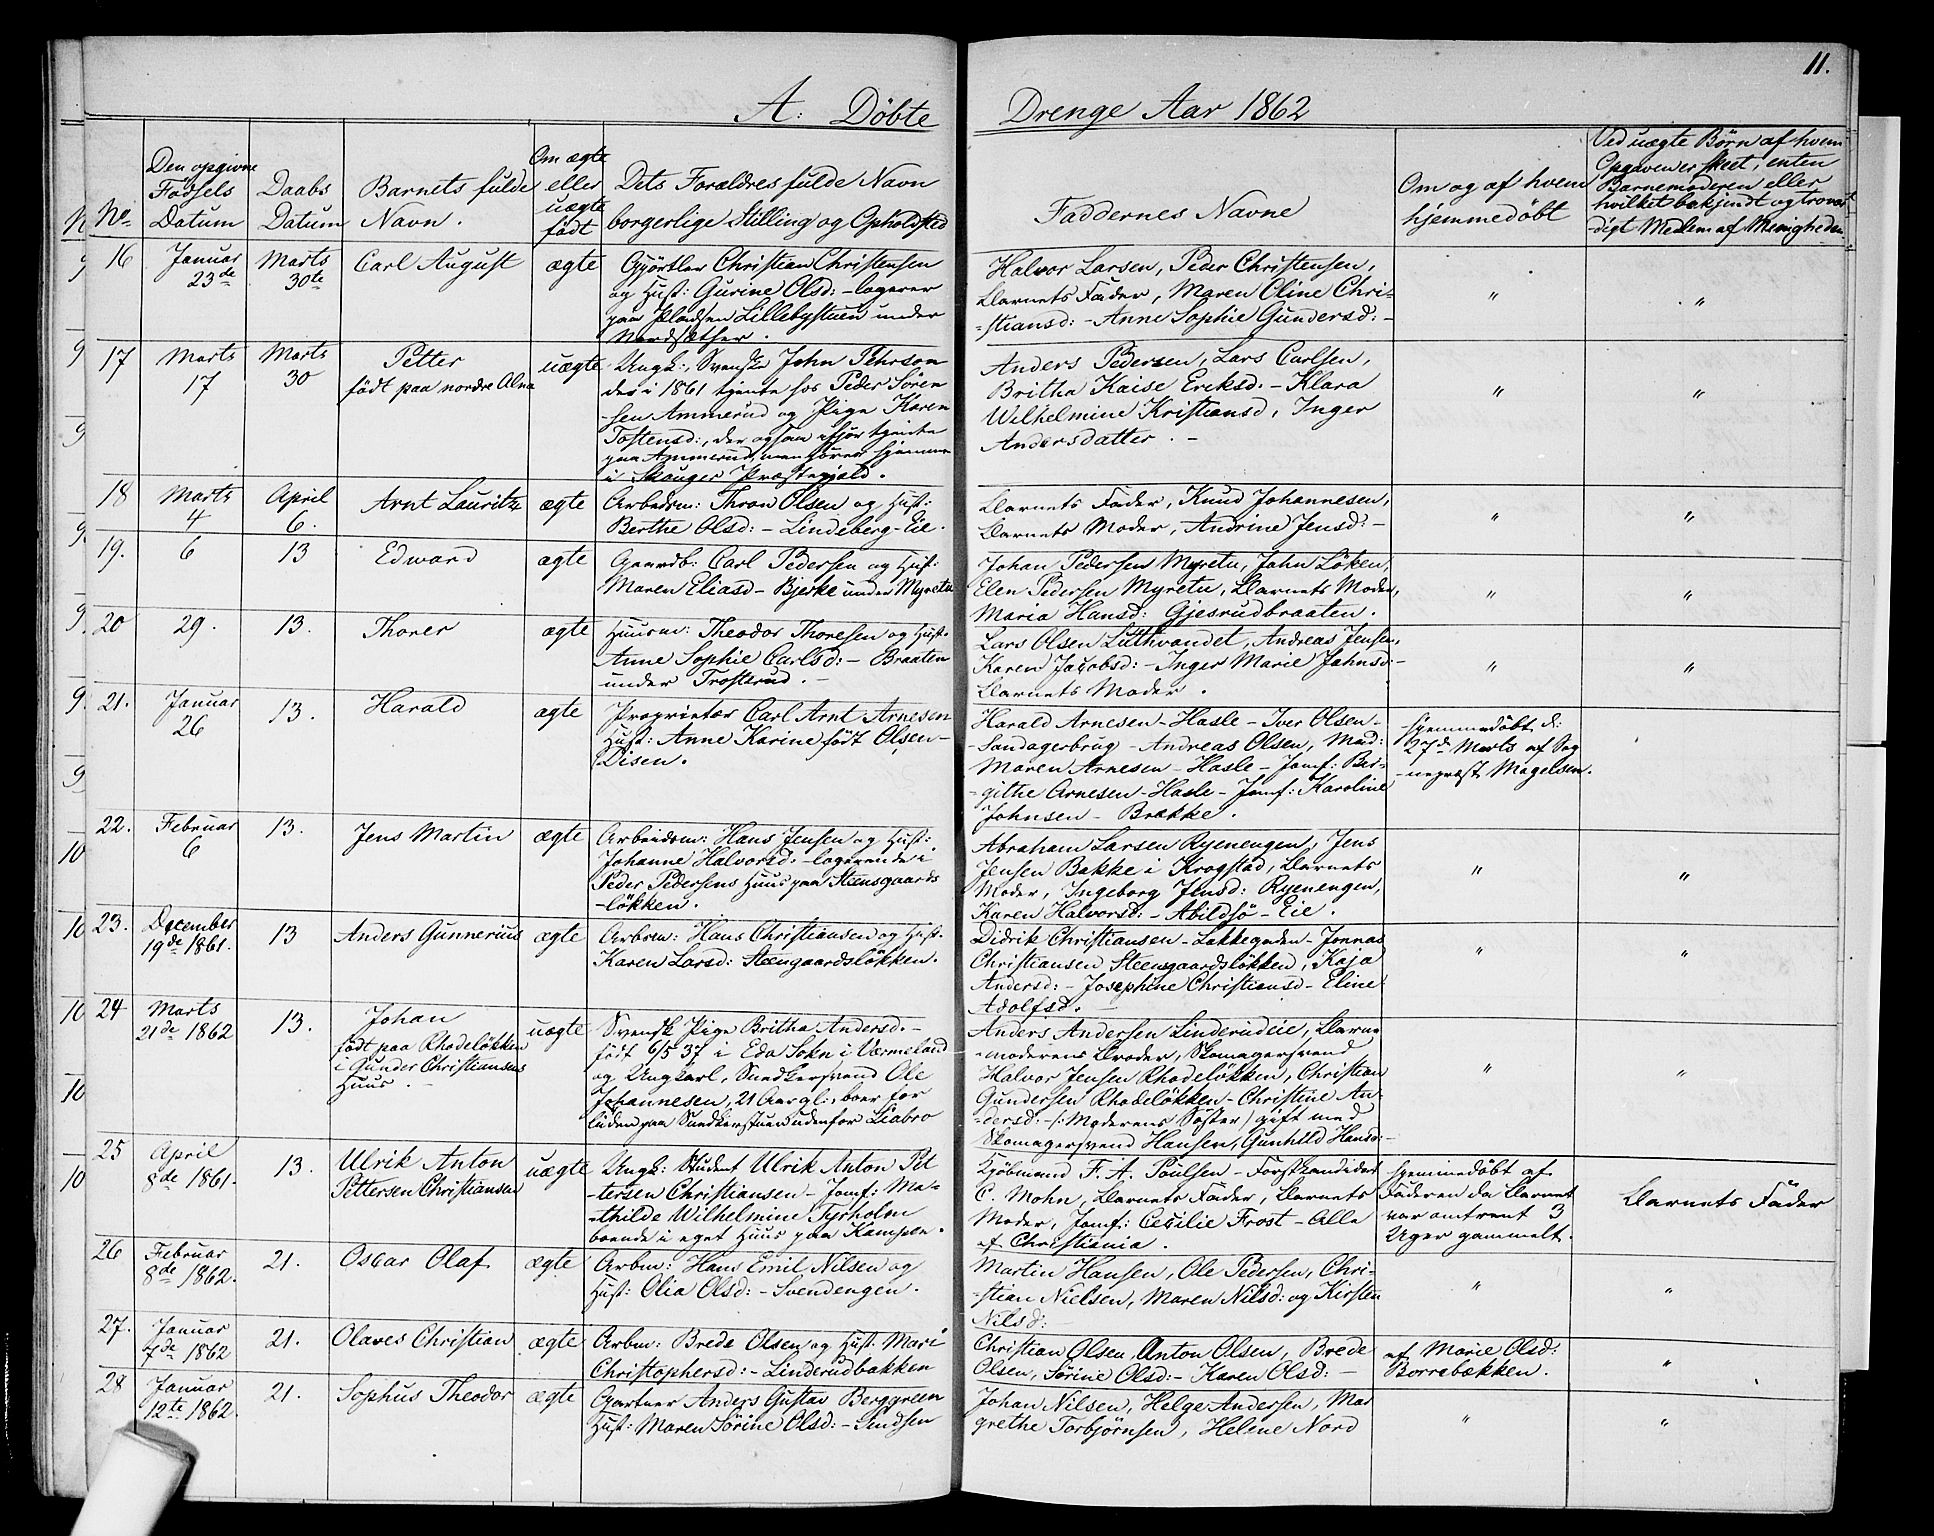 11.
A: Døbte Drenge Aar 1862
No.
Den opgivne
Fødsels
Datum
Daabs
Datum
Barnets fulde
Navn.
Om ægte
eller
uægte
født
Dets Forældres fulde Navn
borgerlige Stilling og Opholdsted
Faddernes Navne
Om og af hvem
hjemmedøbt
Ved uægte Børn af hvem
Opgaven er skeet, enten
Barnemoderen eller
hvilket bekjendt og trovær
-digt Medlem af Menigheden
16
Januar
23de
Marts
30te
Carl August
ægte
Gjørtler Christian Christensen
og Hust: Gurine Olsd: - logerer
paa Pladsen Lillebystuen under
Nordsæther.
Halvor Larsen, Peder Christensen,
Barnets Fader, Maren Oline Chri-
-stiansd: - Anne Sophie Gundersd: -
"
"
17
Marts
17
Marts
30
Petter
født paa nordre Alna
uægte
Ungk:, Svenske John Pehrson
der i 1861 tjente hos Peder Søren
-sen Ammerud og Pige Karen
Tostensd:, der ogsaa ifjor tjente
paa Ammerud, men hører hjemme
i Skouger Præstegjeld.
Anders Pedersen, Lars Carlsen,
Britha Kaise Eriksd. - Klara
Wilhelmine Kristiansd, Inger
Andersdatter. -
"
"
18
Marts
4
April
6.
Arnt Lauritz
ægte
Arbedsm: Thron Olsen og Hust:
Berthe Olsd: - Lindeberg-Eie.
Barnets Fader, Knud Johannesen,
Barnets Moder, Andrine Jensd: -
"
"
19.
6
13
Edward
ægte
Gaardb: Carl Pedersen og Hust:
Maren Eliasd - Bjerke under Myretu
Johan Pedersen Myretu, John Løken,
Elen Pedersen Myretu, Barnets Moder,
Maria Hansd: Gjesrudbraaten.
"
"
20
29.
13.
Thorer
ægte
Huusm: Theodor Thoresen og Hust.
Anne Sophie Carlsd: - Braaten
under Trosterud. -
Lars Olsen Lutthvandet, Andreas Jensen,
Karen Jacobsd: - Inger Marie Johnsd: -
Barnets Moder.
"
"
21.
Januar
26
13.
Harald
ægte
Proprietær Carl Arnt Arnesen
Hust: Anne Karine født Olsen -
Disen.
Harald Arnesen - Hasle - Iver Olsen -
- Sandagerbrug - Andreas Olsen, Mad:
Maren Arnesen - Hasle - Jomf: Bir-
-githe Arnesen - Hasle - Jomf: Karoline
Johnsen - Brække.
Hjemmedøbt d:
27de Marts af Sog
-nepræst Magelsen.
22.
Februar
6
13.
Jens Martin
ægte
Arbeidsm: Hans Jensen og Hust:
Johanne Halvorsd. - logerende i
Peder Pedersens Huus paa Steensgaards
-løkken.
Abraham Larsen Ryenengen, Jens
Jensen Bakke i Krogstad, Barnets
Moder, Ingeborg Jensd: Ryenengen,
Karen Halvorsd: - Abildsø - Eie.
"
"
23.
December
19de 1861.
13
Anders Gunnerius
ægte
Arbsm: Hans Christiansen og Hust.
Karen Larsd: Steengaardsløkken.
Didrik Christiansen - Lakkegaden - Jonnas
Christiansen Steensgaardsløkken, Kaja
Andersd: - Josephine Christiansd - Eline
Adolfsd. -
"
"
24
Marts
21de 1862
13.
Johan
født paa Rhodeløkken
i Gunder Christiansens
Huus. -
uægte
Svensk Pige Britha Andersd. -
født 6/5 37 i Eda Sokn i Værmeland
og Ungkarl, Snedkersvend Ole
Johannesen, 21 Aar gl:, boer for
tiden paa Snedkerstuen udenfor Liabro
Anders Andersen Linderudeie, Barne
-moderens Broder, Skomagersvend
Halvor Jensen Rhodeløkken, Christian
Gundersen Rhodeløkken - Christine An-
-dersd: -/: Moderens Søster/ gift med
Skomagersvend Hansen, Gunhild Hansd: -
"
"
25
April
8de 1861.
13.
Ulrik Anton
Pettersen Christiansen
uægte
Ungk: Student Ulrik Anton Pet
-tersen Christiansen - Jomf: Ma-
-thilde Wilhelmine Tyrholm
boende i eget Huus paa Kampen.
Kjøbmand F. A. Poulsen - Forstkandidat
C. Mohn, Barnets Fader, Barnets
Moder, Jomf: Cecilie Frost - Alle
af Christiania.
Hjemmedøbt af
Faderen da Barnet
var omtrent 3
Uger gammelt.
Barnets Fader
26
Februar
8de 1862.
21.
Oscar Olaf
ægte
Arbm: Hans Emil Nilsen og
Hust: Olia Olsd: - Svendengen.
Martin Hansen, Ole Pedersen, Chri-
-stian Nielsen, Maren Nilsd: og Kirsten
Nilsd:
"
"
27.
Januar
7de 1862
21.
Olaves Christian
ægte
Arbm: Brede Olsen og Hust: Mari
Christophersd: - Linderudbakken
Christian Olsen, Anton Olsen, Brede
Olsen, Sørine Olsd: - Karen Olsd: -
af Marie Olsd:
Borrebækken.
"
28
Januar
12te 1862.
21.
Sophus Theodor
ægte
Gartner Anders Gustav Berggreen
Hust: Maren Sørine Olsd: -
Johan Nilsen, Helge Andersen, Mar
grethe Torbjørnsen, Helene Nord
"
"